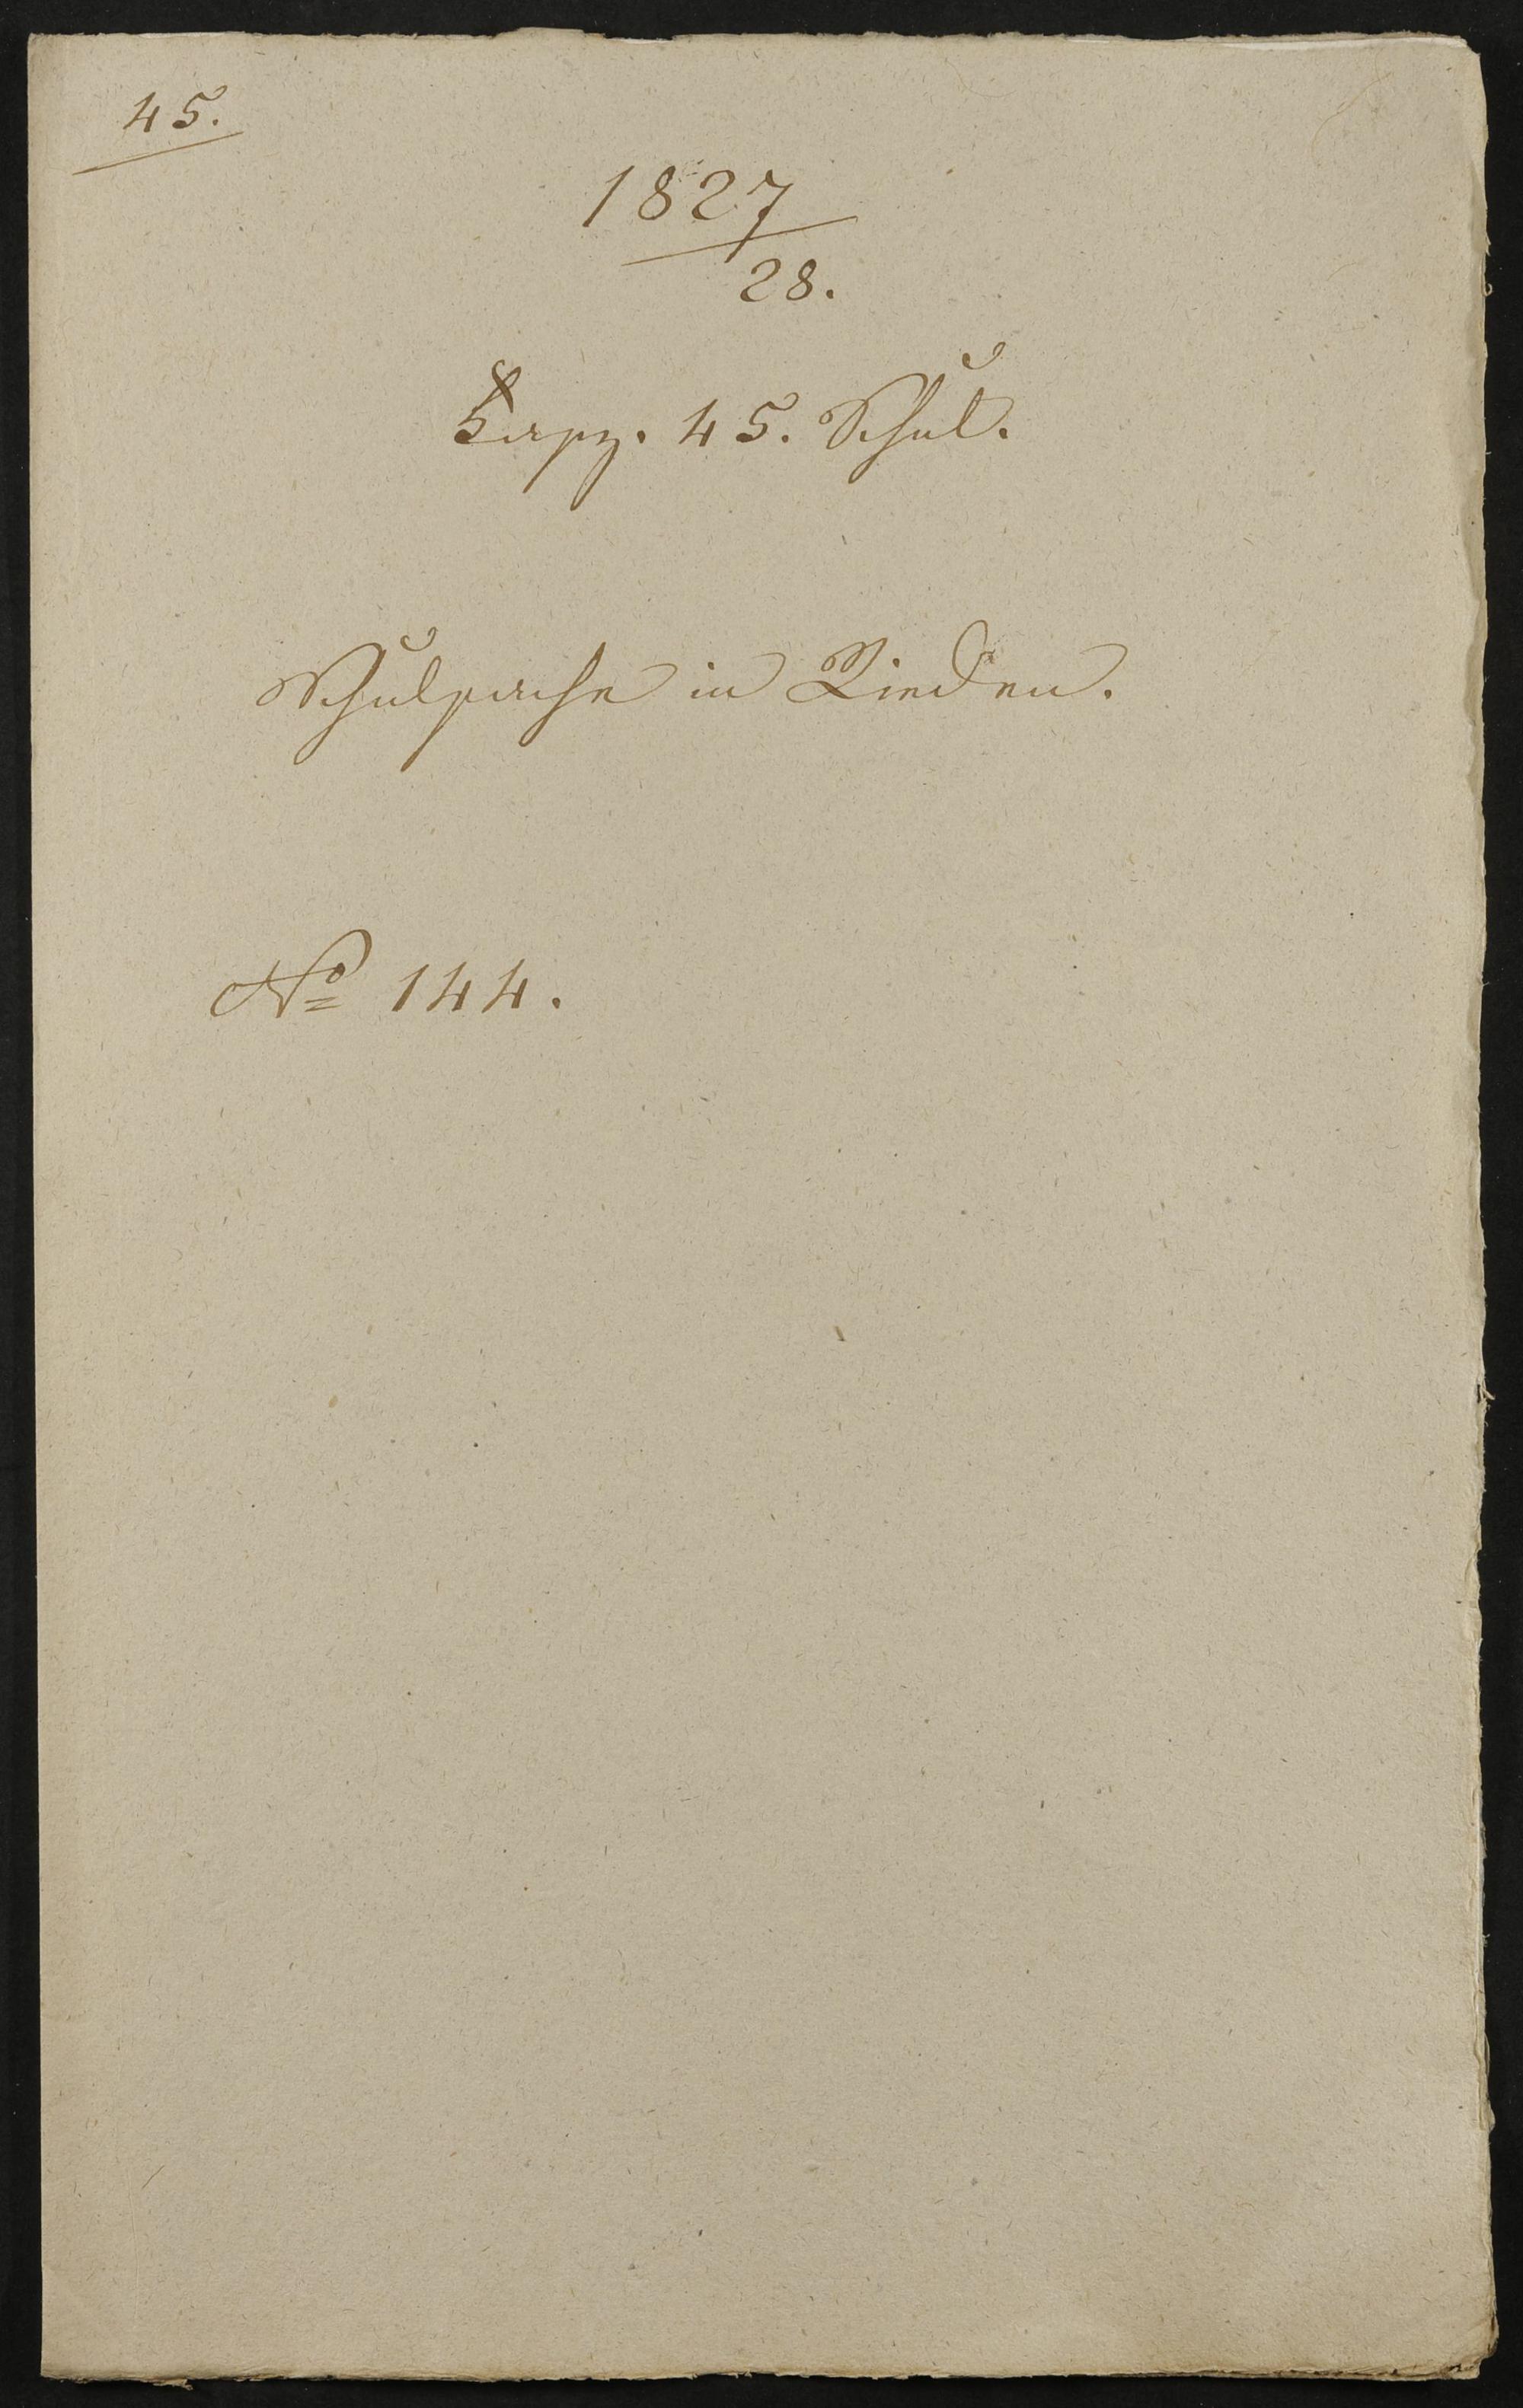 45.
1827
28.
Fasz. 45. Schul.
Schulsache in Rieden.
No 144.